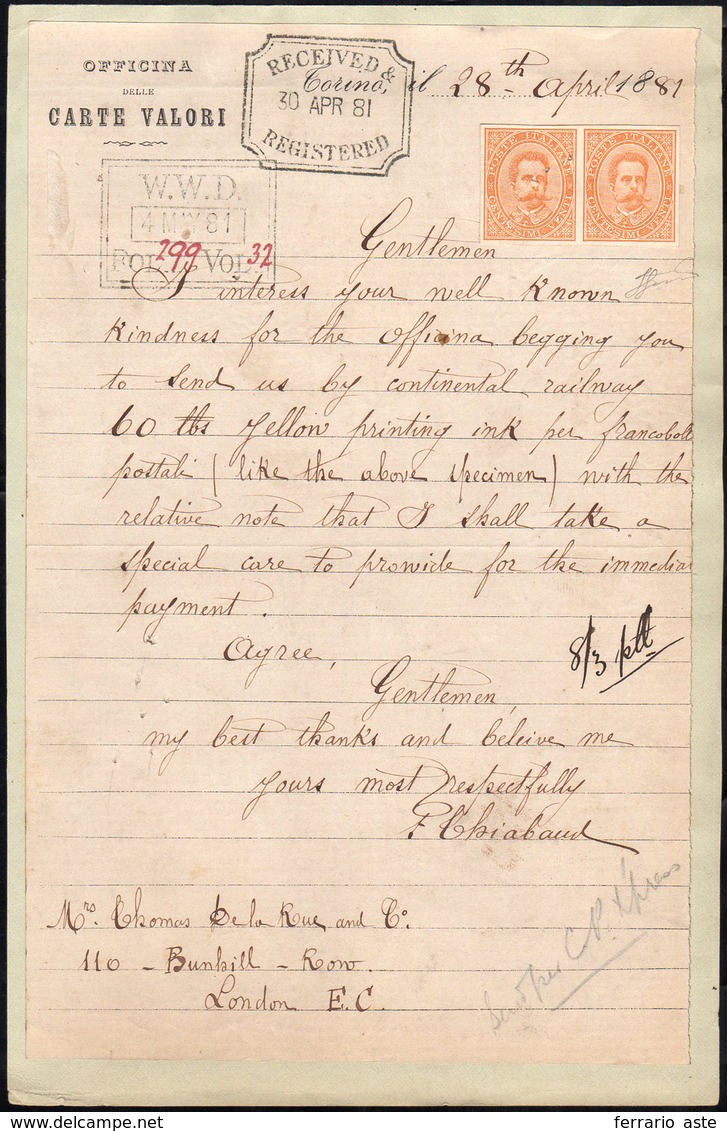 OFFICINA
DELLE
CARTE VALORI
RECEIVED &
30 APR 81
REGISTERED
Torino, il 28th April 1881
POSTE ITALIANE
CENTESIMI VENTI
POSTE ITALIANE
CENTESIMI VENTI
W.W.D.
4 MAY 81
FOL. 299 VOL 32
Gentlemen
I interess your well known
kindness for the Officina begging you
to send us by continental railway
60 lbs yellow printing ink per francobolli
postali (like the above specimen) with the
relative note that I shall take a
special care to prowide for the immedia
payment.
Agree,
Gentlemen,
my best thanks and beleive me
yours most respectfully
F. Chiabaud
8/3 ptt
Mrs. Thomas De la Rue and Co.
110 - Bunhill - Row.
London E.C.
Sent per C.P. Xpress
ferrario aste